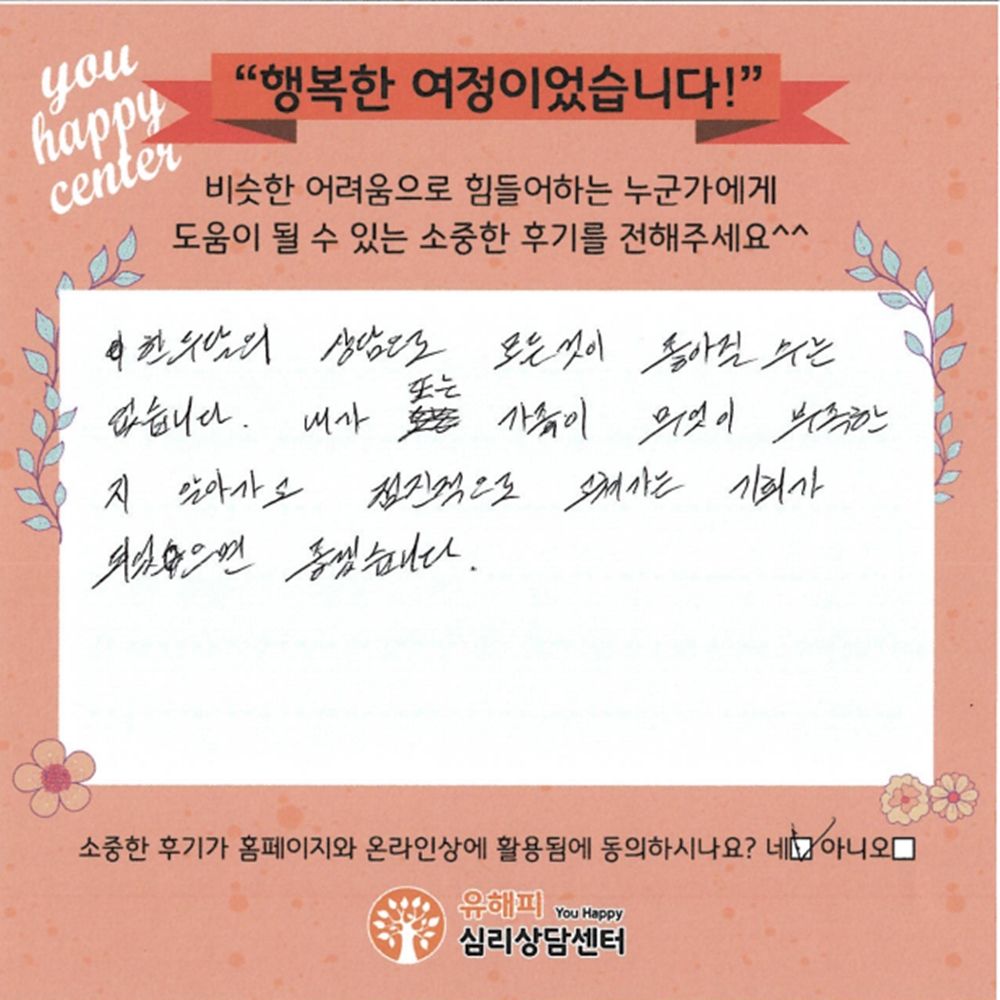 you
happy
center
“행복한 여정이었습니다!”
비슷한 어려움으로 힘들어하는 누군가에게
도움이 될 수 있는 소중한 후기를 전해주세요^^
한두달의 상담으로 모든것이 좋아질 수는
없습니다. 내가 또는 가족이 무엇이 부족한
지 알아가고 점진적으로 고쳐가는 기회가
되었으면 좋겠습니다.
소중한 후기가 홈페이지와 온라인상에 활용됨에 동의하시나요? 네☑ 아니오☐
유해피 You Happy
심리상담센터